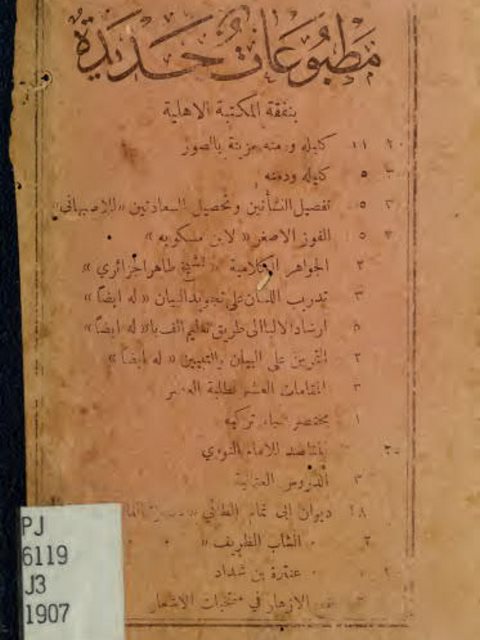 مطبوعات جديدة
بنفقة المكتبة الاهلية
١١ كليله ودمنه مزينة بالصور
٥ كليله ودمنه
٢ ٥ تفصيل النشأتين وتحصيل السعادتين «للاصبهاني»
٥ الفوز الاصغر «لابن مسكويه»
٢ الجواهر الكلامية «للشيخ طاهر الجزائري»
٣ تدريب اللسان على تجويد البيان «له ايضاً»
٥ ارشاد الالبا الى طريق تعليم الف با «له ايضاً»
٢ التمرين على البيان والتبيين «له ايضاً»
٣ المقامات العشر لطلبة العصر
١ مختصر
المقاصد للامام النووي
٣ الدروس
١٨ ديوان ابي تمام الطائي
٢ الشاب الظريف
عنترة بن شداد
الازهار في منتخبات الاشعار
PJ
6119
J3
1907